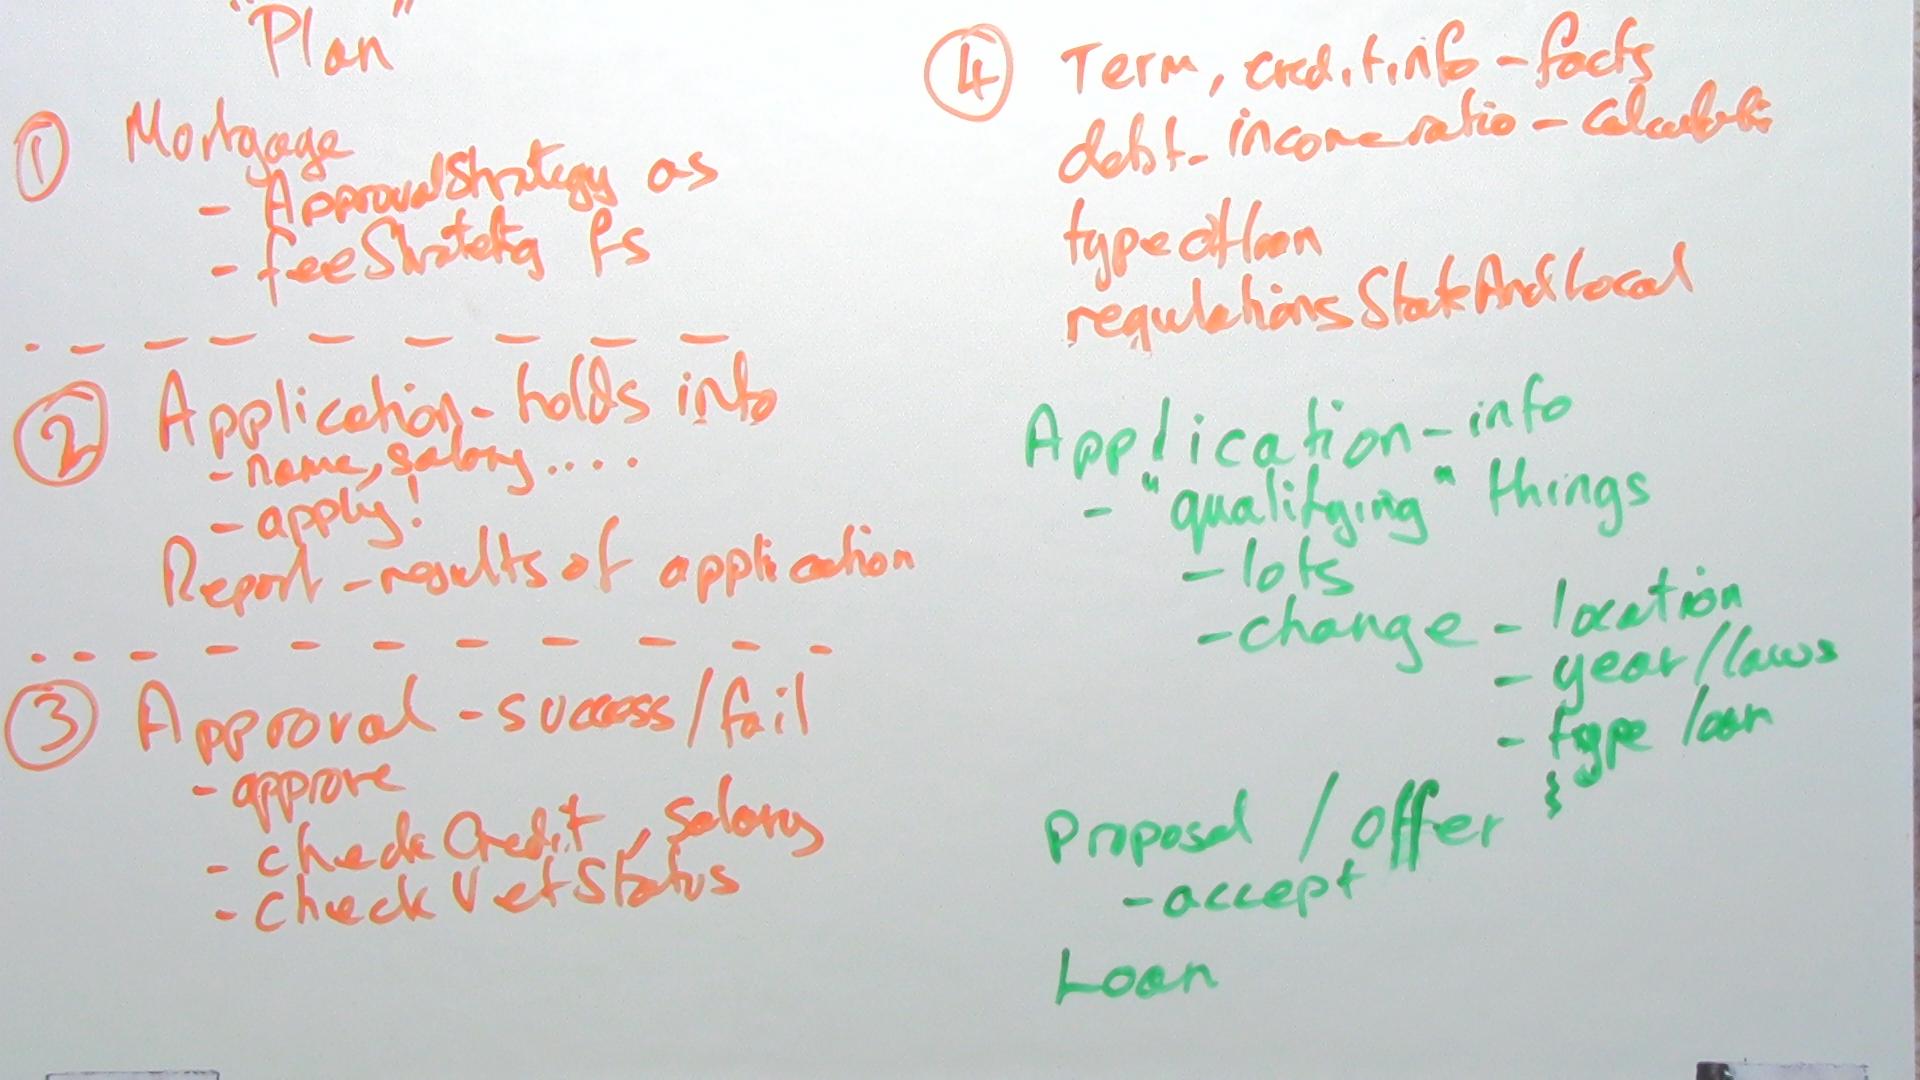 "Plan"
① Mortgage
- ApprovalStrategy as
- feeStrategy fs
② Application - holds info
- name, salary....
- apply!
Report - results of application
③ Approval - success/fail
- approve
- checkCredit, salary
- checkVetStatus
④ Term, credit info - facts
debt-income ratio -
typeOfLoan
regulationsStateAndLocal
Application - info
- "qualifying" things
- lots
- change - location
- year/laws
- type loan
Proposal / Offer
- accept
Loan